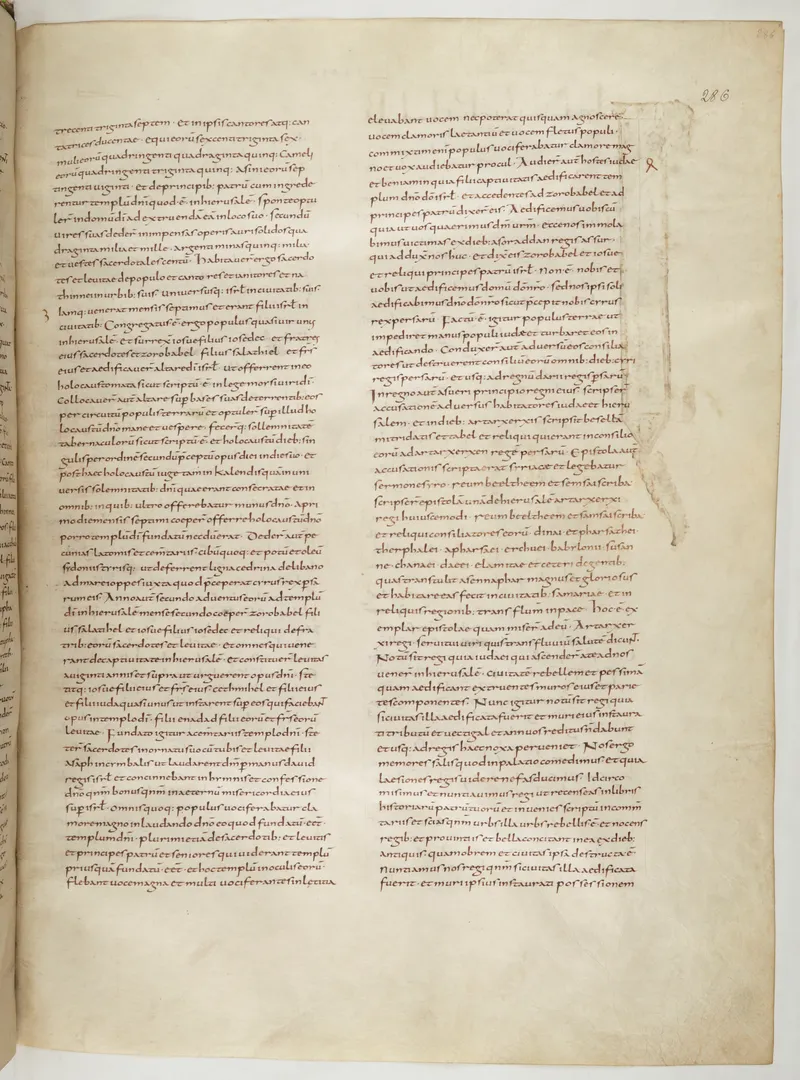 286
trecenti triginta septem · Et in ipsis cantores atq: can
tatrices ducentae · equi eorū sexcenti triginta sex ·
muli eorū quadringenti quadraginta quinq: Cameli
eorū quadringenti triginta quinq: Asini eorū sep
tingenti uiginti · Et de principib: patrū cum ingrede
rentur templū dnī quod ē in hierusalē · sponte optu
ler in domū dī ad extruendā eā in loco suo · secundū
uires suas deder inpensas operis auri solidos qua
draginta milia et mille · argenti minas quinq: milia ·
et uestes sacerdotales centū · Habitauer ergo sacerdo
tes et leuitae de populo et cantores et ianitores et na
thinnei in urbib: suis uniuersusq: isrł in ciuitatib: suis
Iamq: uenerat mensis septimus et erant filii isrł in
ciuitatib: Congregatus ē ergo populus quasi uir unus
in hierusalē · et surrexit iosue filius iosedec · et fratres
eius sacerdotes et zorobabel filius salathiel · et frs
eius et aedificauer altare dī isrł · ut offerrent in eo
holocaustomata sicut scriptū ē in lege mosi uiri dī ·
Collocauer aut altare sup bases suas deterrentib: eos
per circuitū populis terrarū et optuler sup illud ho
locaustū dno mane et uespere · fecerq: sollemnitatē
tabernaculorū sicut scriptū ē · et holocaustū dieb: sin
gulis per ordinē secundū pceptū opus diei in die suo · et
post haec holocaustū iuge tam in kalendis quam in uni
uersis solemnitatib: dnī quae erant consecratae · et in
omnib: in quib: ultro offerebatur munus dno · A pri
mo die mensis septimi coeper offerre holocaustū dno
porro templū dī fundatū necdū erat · Deder aut pe
cunias latomis et cementariis cibū quoq: et potū et oleū
sidoniis tyriisq: ut deferrent ligna cedrina de libano
ad mare ioppes iuxta quod pceperat cyrus rex psa
rum eis · Anno aut secundo aduentus eorū ad templū
dī in hierusalē mense secundo coeper zorobabel fili
us salathiel et iosue filius iosedec et reliqui de fra
trib: eorū sacerdotes et leuitae · et omnes qui uene
rant de captiuitate in hierusalē · et constituer leuitas
a uiginti annis et supra ut urguerent opus dnī · Ste
titq: iosue filii eius et frs eius cethmihel et filii eius
et filii iuda quasi unus ut instarent sup eos qui faciebant
opus in templo dī · filii enadad filii eorū et frs eorū
leuitae · Fundato igitur a cementariis templo dnī · ste
ter sacerdotes in ornatu suo cū tubis et leuitae filii
asaph in cymbalis ut laudarent dm p manus dauid
regis isrł · et concinnebant in hymnis et confessione
dno qnm bonus qnm in aeternū misericordia eius
sup isrł · omnis quoq: populus uociferabatur cla
more magno in laudando dno eo quod fundatū eēt ·
templum dnī · plurimi etiā de sacerdotib: et leuitis
et principes patrū et seniores qui uiderant templū
prius quā fundatū eēt · et hoc templū in oculis eorū ·
flebant uoce magna et multi uociferantes in letitia
eleuabant uocem nec poterat quisquam agnoscere
uocem clamoris laetantiū et uocem fletus populi ·
commixtam enī populus uociferabatur clamore mag
no et uox audiebatur procul · Audier aut hostes iudae
et beniamin quia filii captiuitatis aedificarent tem
plum dno dō isrł · et accedentes ad zorobabel et ad
principes patrū dixer eis · Aedificemus uobiscū
quia ut uos quaerimus dm urm · et ecce nos immola
bimus uictimas ex dieb: asoraddan regis assur ·
qui adduxit nos huc · et dixit eis zorobabel et iosue
et reliqui principes patrū isrł · Non ē nobis et
uobis ut aedificemus domū dō nro · sed nos ipsi soli
aedificabimus dno dō nro sicut pcepit nobis cyrus
rex persarū · Factū ē igitur populus terrae ut
impediret manus populi iudae et turbaret eos in
aedificando · Conduxer aut aduersū eos consilia
tores ut destruerent consiliū eorū omnib: dieb: cyri
regis persarū · et usq: ad regnū darii regis psarū
In regno aut asueri principio regni eius scripser
accusationē aduersus habitatores iudae et hieru
salem · et in dieb: artarxerxis scripsit beselā
mitridatis et tabel et reliqui qui erant in consilio
eorū ad artarxerxen regē persarū · Epistola aut
accusationis scripta erat syriace et legebatur
sermone syro · reum beelteem et samsai scriba
scripser epistolā unā de hierusalē artarxerxi
regi huiuscemodi · reum beelteem et samsai scriba
et reliqui consiliatores eorū · dinai et pharsathei
therphalei · apharsaei · erchuei · babylonii · susan
ne · chanaei · daei · elamitae · et ceteri de gentib:
quas transtulit asennaphar magnus et gloriosus
et habitare eas fecit in ciuitatib: samariae · et in
reliquis regionib: trans flum in pace · Hoc ē ex
emplar epistolae quam miser ad eū · Artarxer
xi regi serui tui uiri qui s trans fluuiū salutē dicunt
Notū sit regi quia iudaei qui ascender a te ad nos
uener in hierusalē · ciuitatē rebellem et pessimā
quam aedificant extruentes muros eius et parie
tes componentes · Nunc igitur notū sit regi quia
si ciuitas illa aedificata fuerit et muri eius instaura
ti tributū et uectigal et annuos reditus nī dabunt
et usq: ad regis haec noxa perueniet · Nos ergo
memores salis quod in palatio comedimus et quia
laesiones regis uidere nefas ducimus · Idcirco
misimus et nuntiauimus regi ut recenseas in libris
historiarū patrū tuorū et inuenies scriptū in comm
tariis et scias qnm urbs illa urbs rebellis ē · et nocens
regib: et prouintiis et bella concitant in ea ex dieb:
antiquis quam obrem et ciuitas ipsa destructa ē ·
Nuntiamus nos regi qnm si ciuitas illa aedificata
fuerit · et muri ipsius instaurati possessionem